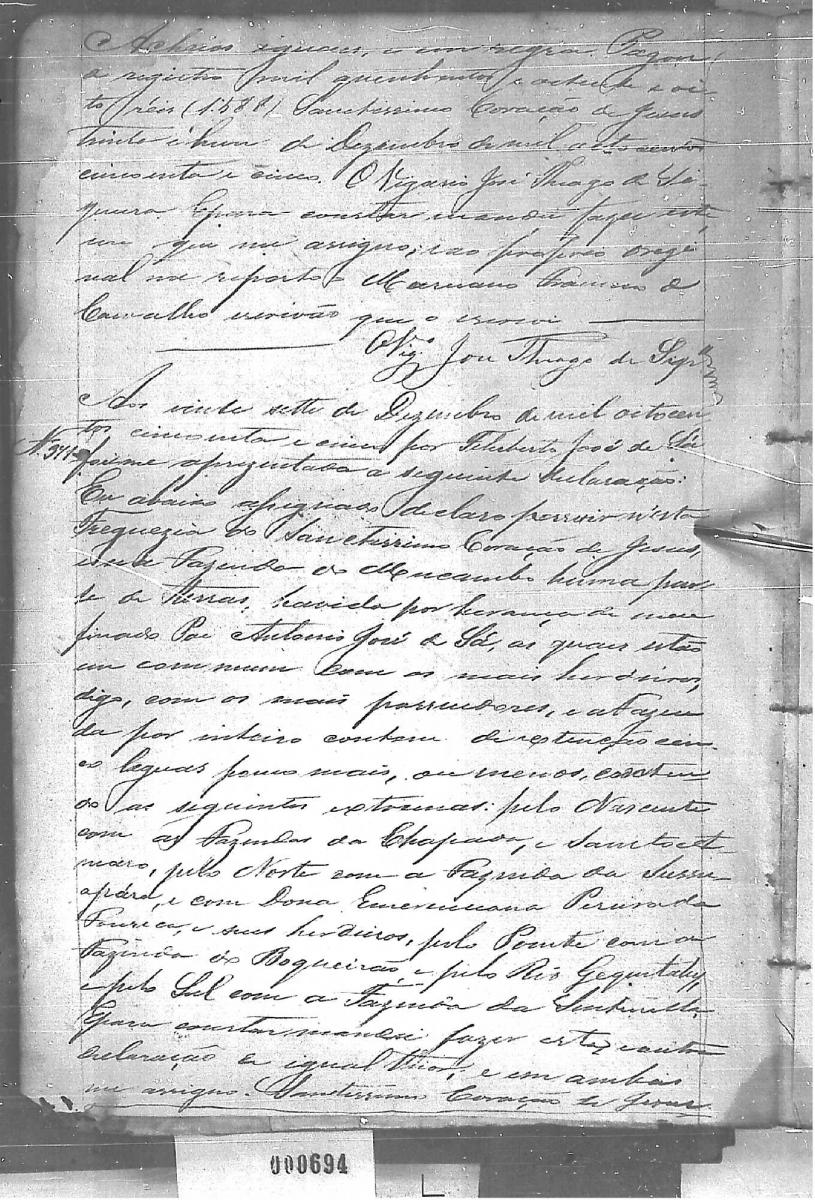 Achei-os iguaes, e em regra. Pagou
a registro mil quinhentos e oitenta e oi-
to réis (1.588) Sanctissimo Coração de Jesus
trinta e hum de Dezembro de mil oito centos
cincoenta e cinco. O Vigario José Thiago de Si-
queira. E para constar mandei fazer este,
em que me assigno, e ao proprio origi
nal me reporto. Marianno Francisco de
Carvalho escrivão que o escrevi
O Vigº José Thiago de Siqrª
Aos vinde sette de Dezembro de mil octocen
tos cincoenta e cinco por Feliberto José de Sá
Nº 341
foi-me aprezentada a seguinte declaração:
Eu abaixo assignado declaro possuir n'esta
Freguezia do Sanctissimo Coração de Jesus,
em a Fazenda do Mucambo huma par
te de terras, havida por herança de meu
finado Pai Antonio José de Sá, as quaes estão
em commum com os mais herdeiros,
digo, com os mais possuidores, e a Fazen
da por inteiro contem de extenção cin
co leguas pouco mais, ou menos, conten
do as seguintes extremas: pelo Nascente
com as Fazendas da Chapada, e Sancto A
maro, pelo Norte com a Fazenda da Sussu
apára, e com Dona Emerenciana Pereira da
Fonseca, e seus herdeiros, pelo Poente com a
Fazenda do Boqueirão, e pelo Rio Gequitahy,
e pelo Sul com a Fazenda da Sentinella.
E para constar mandei fazer esta, e outra
declaração de igual theor, e em ambas
me assigno. Sanctissimo Coração de Jesus
000694